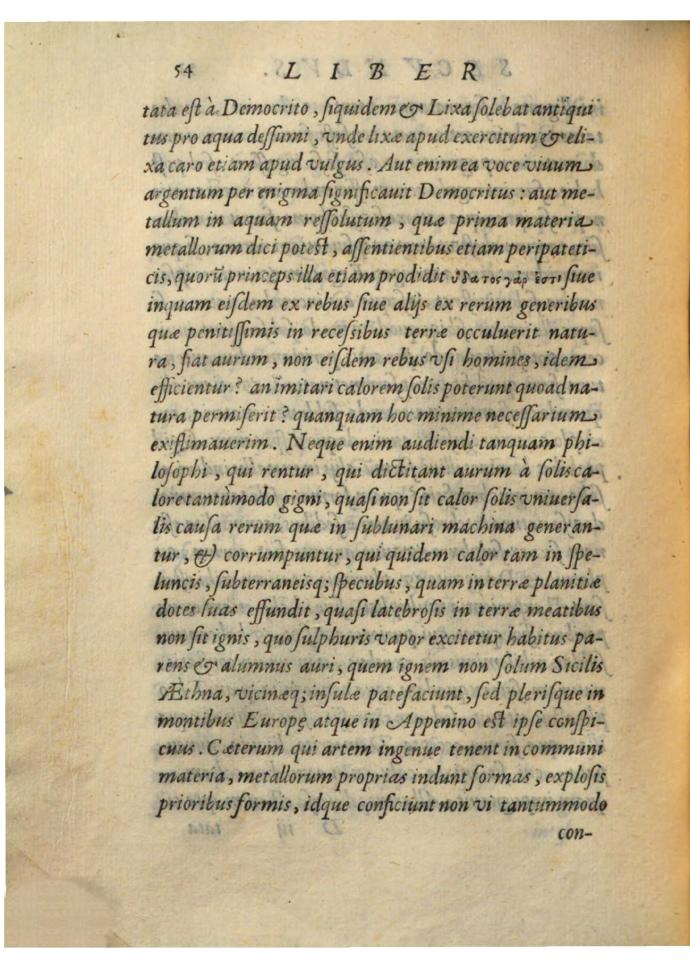 54 LIBER
tata est à Democrito, siquidem & Lixa solebat antiqui
tus pro aqua dessumi, vnde lixæ apud exercitum & eli-
xa caro etiam apud vulgus. Aut enim ea voce viuum
argentum per enigma significauit Democritus: aut me-
tallum in aquam ressolutum, quæ prima materia
metallorum dici potest, assentientibus etiam peripateti-
cis, quorũ princeps illa etiam prodidit ὑδατος γάρ ἐστι siue
inquam eisdem ex rebus siue alijs ex rerum generibus
quæ penitissimis in recessibus terræ occuluerit natu-
ra, fiat aurum, non eisdem rebus vsi homines, idem
efficientur? an imitari calorem solis poterunt quoad na-
tura permiserit? quanquam hoc minime necessarium
existimauerim. Neque enim audiendi tanquam phi-
losophi, qui rentur, qui dictitant aurum à solis ca-
lore tantùmodo gigni, quasi non sit calor solis vniuersa-
lis causa rerum quæ in sublunari machina generan-
tur, & corrumpuntur, qui quidem calor tam in spe-
luncis, subterraneisq; specubus, quam in terræ planitiæ
dotes suas effundit, quasi latebrosis in terræ meatibus
non sit ignis, quo sulphuris vapor excitetur habitus pa-
rens & alumnus auri, quem ignem non solum Sicilis
Æthna, vicinæq; insulæ patefaciunt, sed plerisque in
montibus Europę atque in Appenino est ipse conspi-
cuus. Cæterum qui artem ingenue tenent in communi
materia, metallorum proprias indunt formas, explosis
prioribus formis, idque conficiunt non vi tantummodo
con-